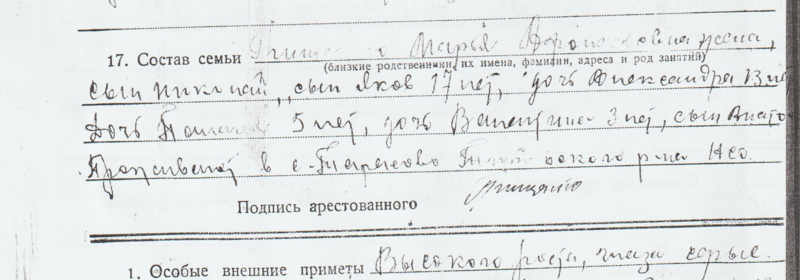 17. Состав семьи Марья жена,
(близкие родственники, их имена, фамилии, адреса и род занятий)
сын Николай, сын Яков 17 лет, дочь Александра 13 лет
Дочь 5 лет, дочь Валентина 3 лет, сын
Проживают в с. Тарасово р-на
Подпись арестованного
1. Особые внешние приметы Высокого роста, глаза серые.